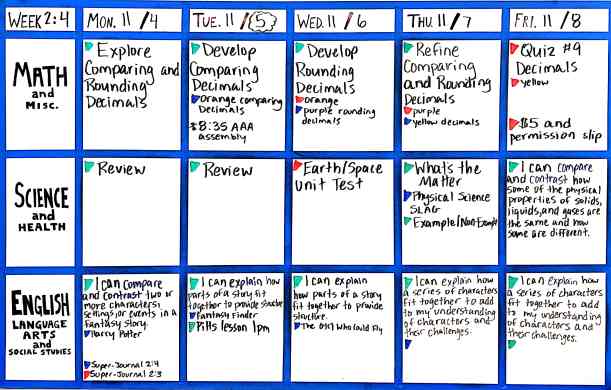 WEEK 2:4
MON. 11/4
TUE. 11/5
WED. 11/6
THU. 11/7
FRI. 11/8
MATH
and
MISC.
Explore
Comparing and
Rounding
Decimals
Develop
Comparing
Decimals
Orange comparing
Decimals
8:35 AAA
assembly
Develop
Rounding
Decimals
orange
purple rounding
decimals
Refine
Comparing
and Rounding
Decimals
purple
yellow decimals
Quiz #9
Decimals
yellow
$5 and
permission slip
SCIENCE
and
HEALTH
Review
Review
Earth/Space
Unit Test
Whats the
Matter
Physical Science
SLAG
Example/Non-Example
I can compare
and contrast how
some of the physical
properties of solids,
liquids, and gases are
the same and how
some are different.
ENGLISH
LANGUAGE
ARTS
and
SOCIAL STUDIES
I can compare
and contrast two or
more characters,
settings, or events in a
Fantasy Story.
Harry Potter
Super-Journal 2:4
Super-Journal 2:3
I can explain how
parts of a story fit
together to provide structure
Fantasy Finder
Pills lesson 1pm
I can explain
how parts of a story
fit together to provide
structure.
The Girl Who Could Fly
I can explain how
a series of characters
fit together to add
to my understanding
of characters and
their challenges.
I can explain how
a series of characters
fit together to add
to my understanding
of characters and
their challenges.